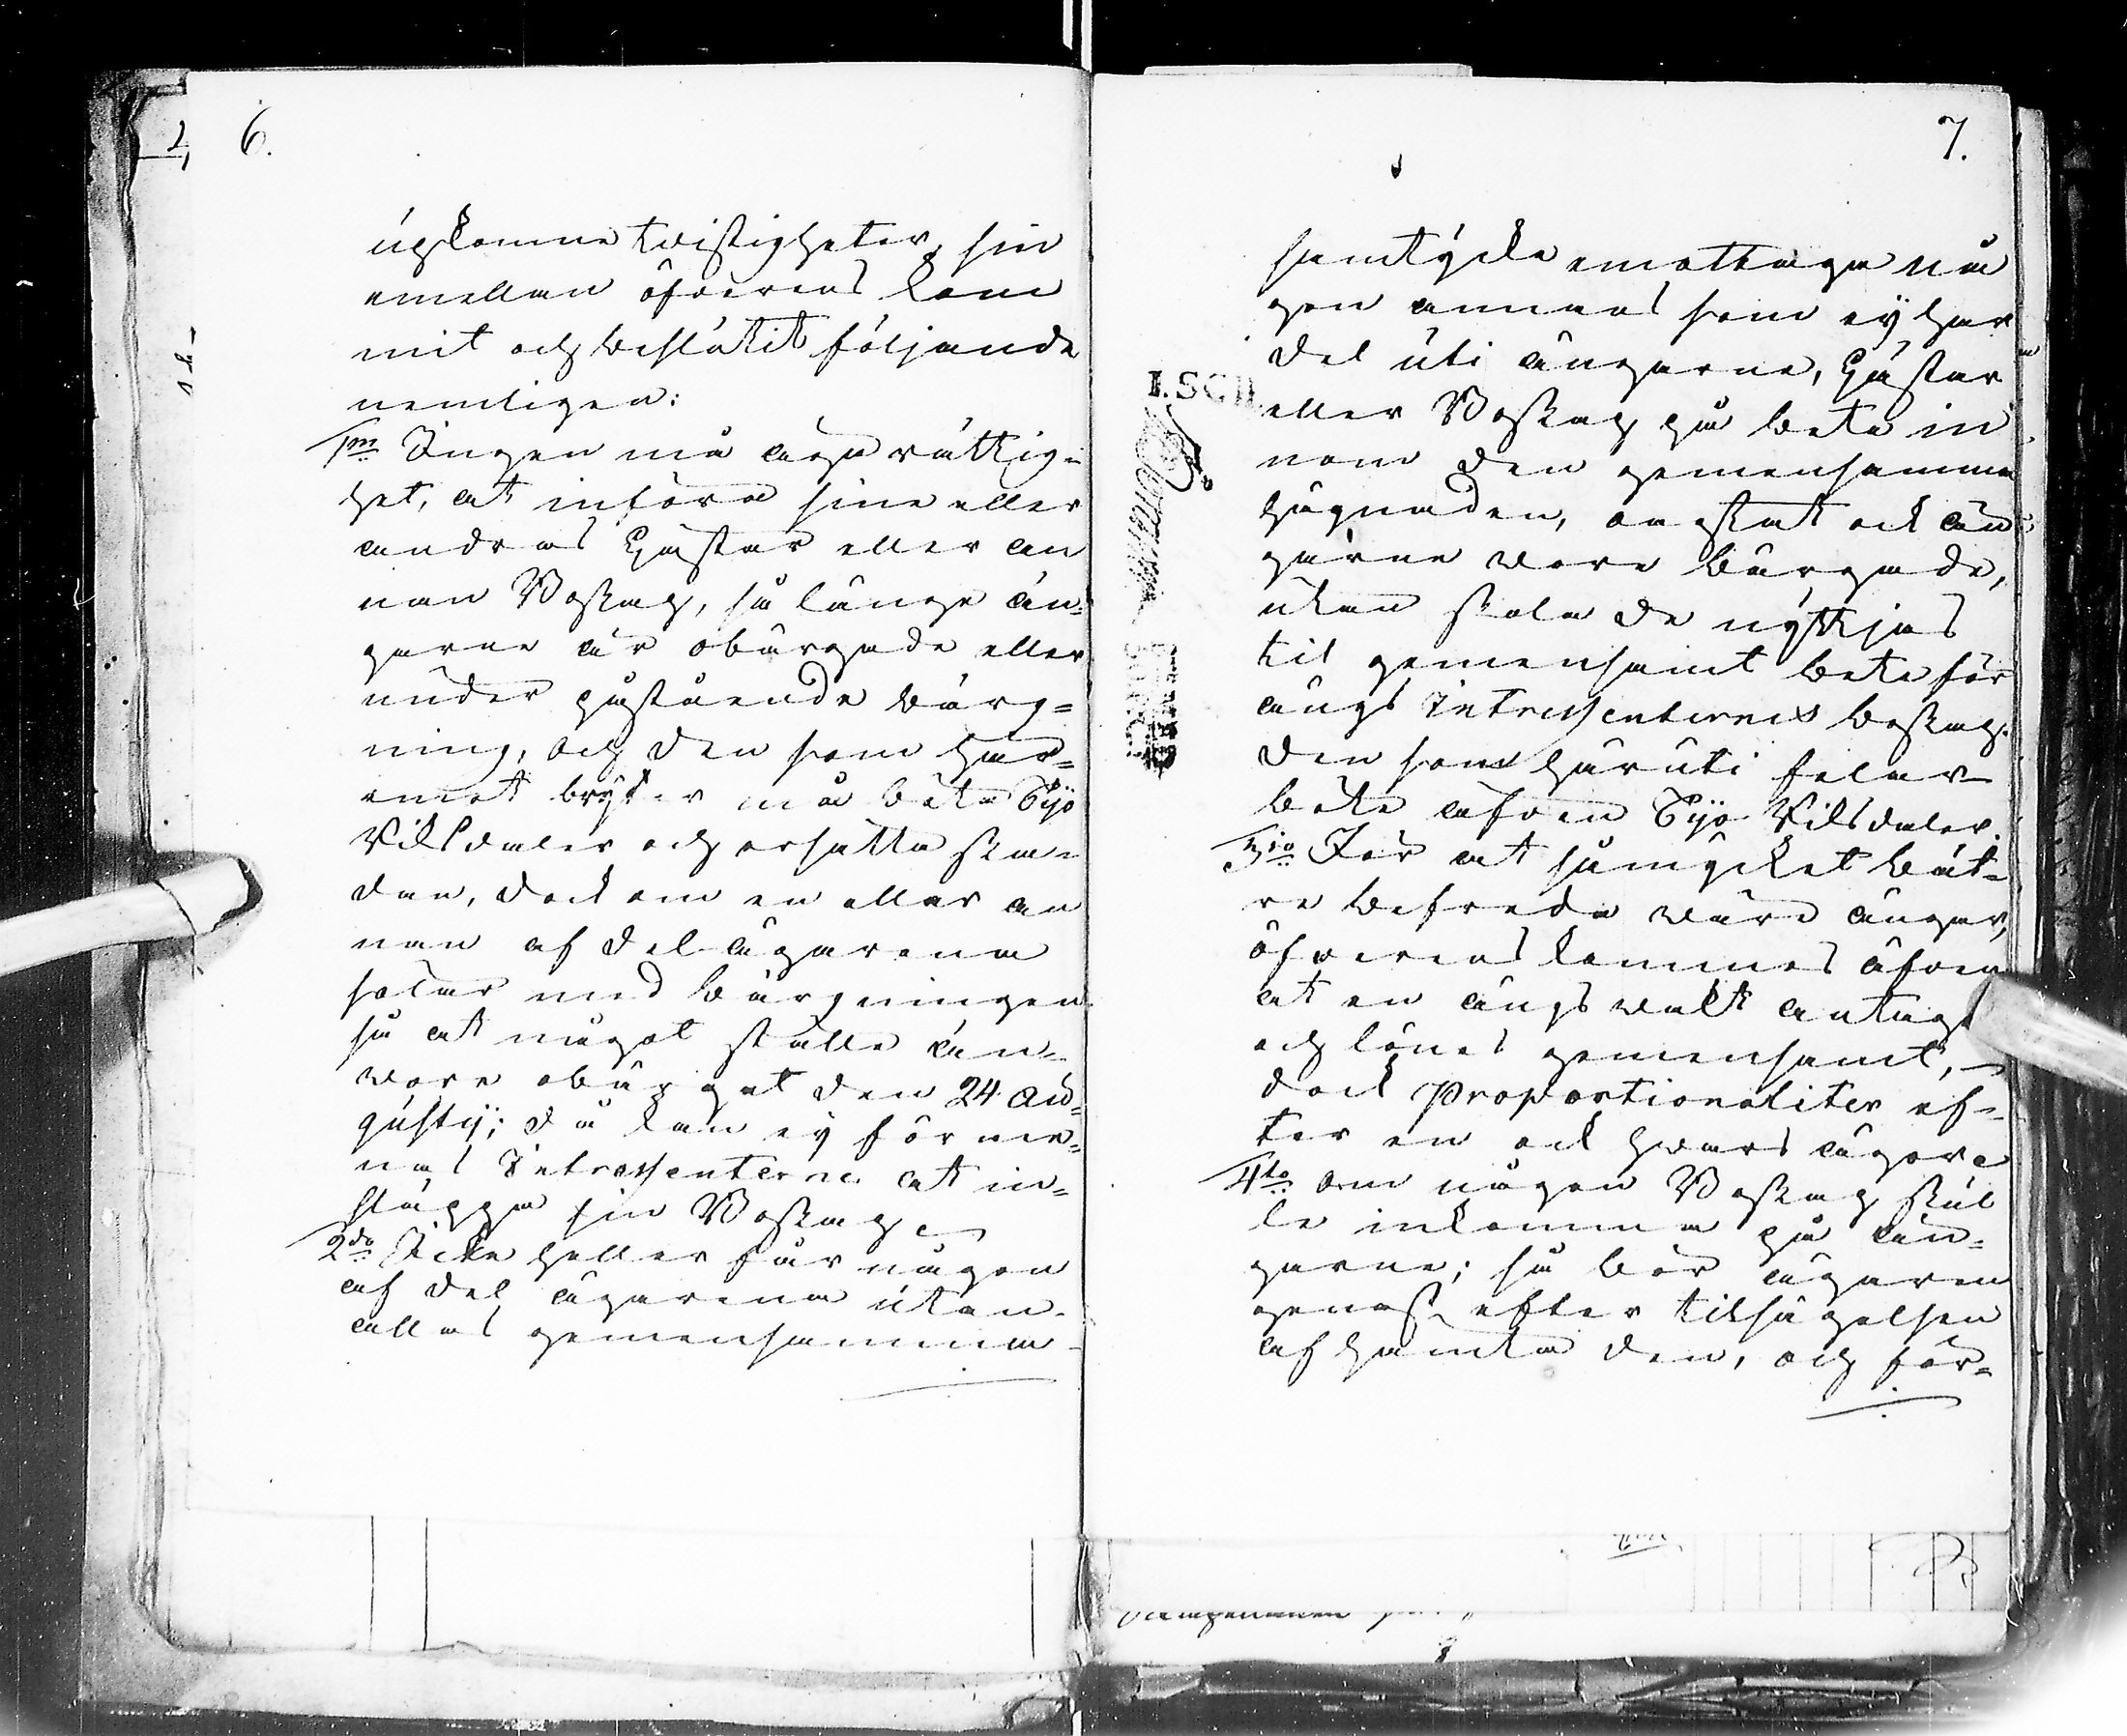 6.
upkomne twistigheter, sin
emellan öfverens kom
mit och beslutit följande
nemligen:
1m Ingen må äga rättig-
het, at införa sine eller
andras Hästar eller an
nan Boskap, så länge än-
garne är obärgade eller
under påstående bärg=
ning, och den som här=
emot bryter må böta Tijo
Riksdaler och ersätta ska-
dan, dock om en eller an
nan af del ägarena
sölar med bärgningen
så at något ställe än-
wore obärgat den 24 Au=
gustij; då kan ej förme=
nas Intressenterne at in=
släppa sin Boskap
2do Icke heller får någon
af del ägarena utan
allas gemensamma
7.
samtycke emottaga nå
gon annans som ej har
del uti ängarne, Hästar
eller Boskap på bete in
nom den gemensamma
hägnaden, oagtat ock än
garne wore bärgade,
utan skola de nyttjas
til gemensamt bete för
ängs Intressenternes boskap.
Den som häruti felar
böte äfven Tijo Riksdaler.
3tio För at såmycket bät-
re befreda wåre ängar,
öfverenskommes äfven
at en ängs wakt antages
och lönes gemensamt,
dock Proportionaliter ef-
ter en och hwars ägor
4to Om någon Boskap skul
le inkomma på än-
garne; så bör ägaren
genast efter tilsägelsen
afhämta den, och för-